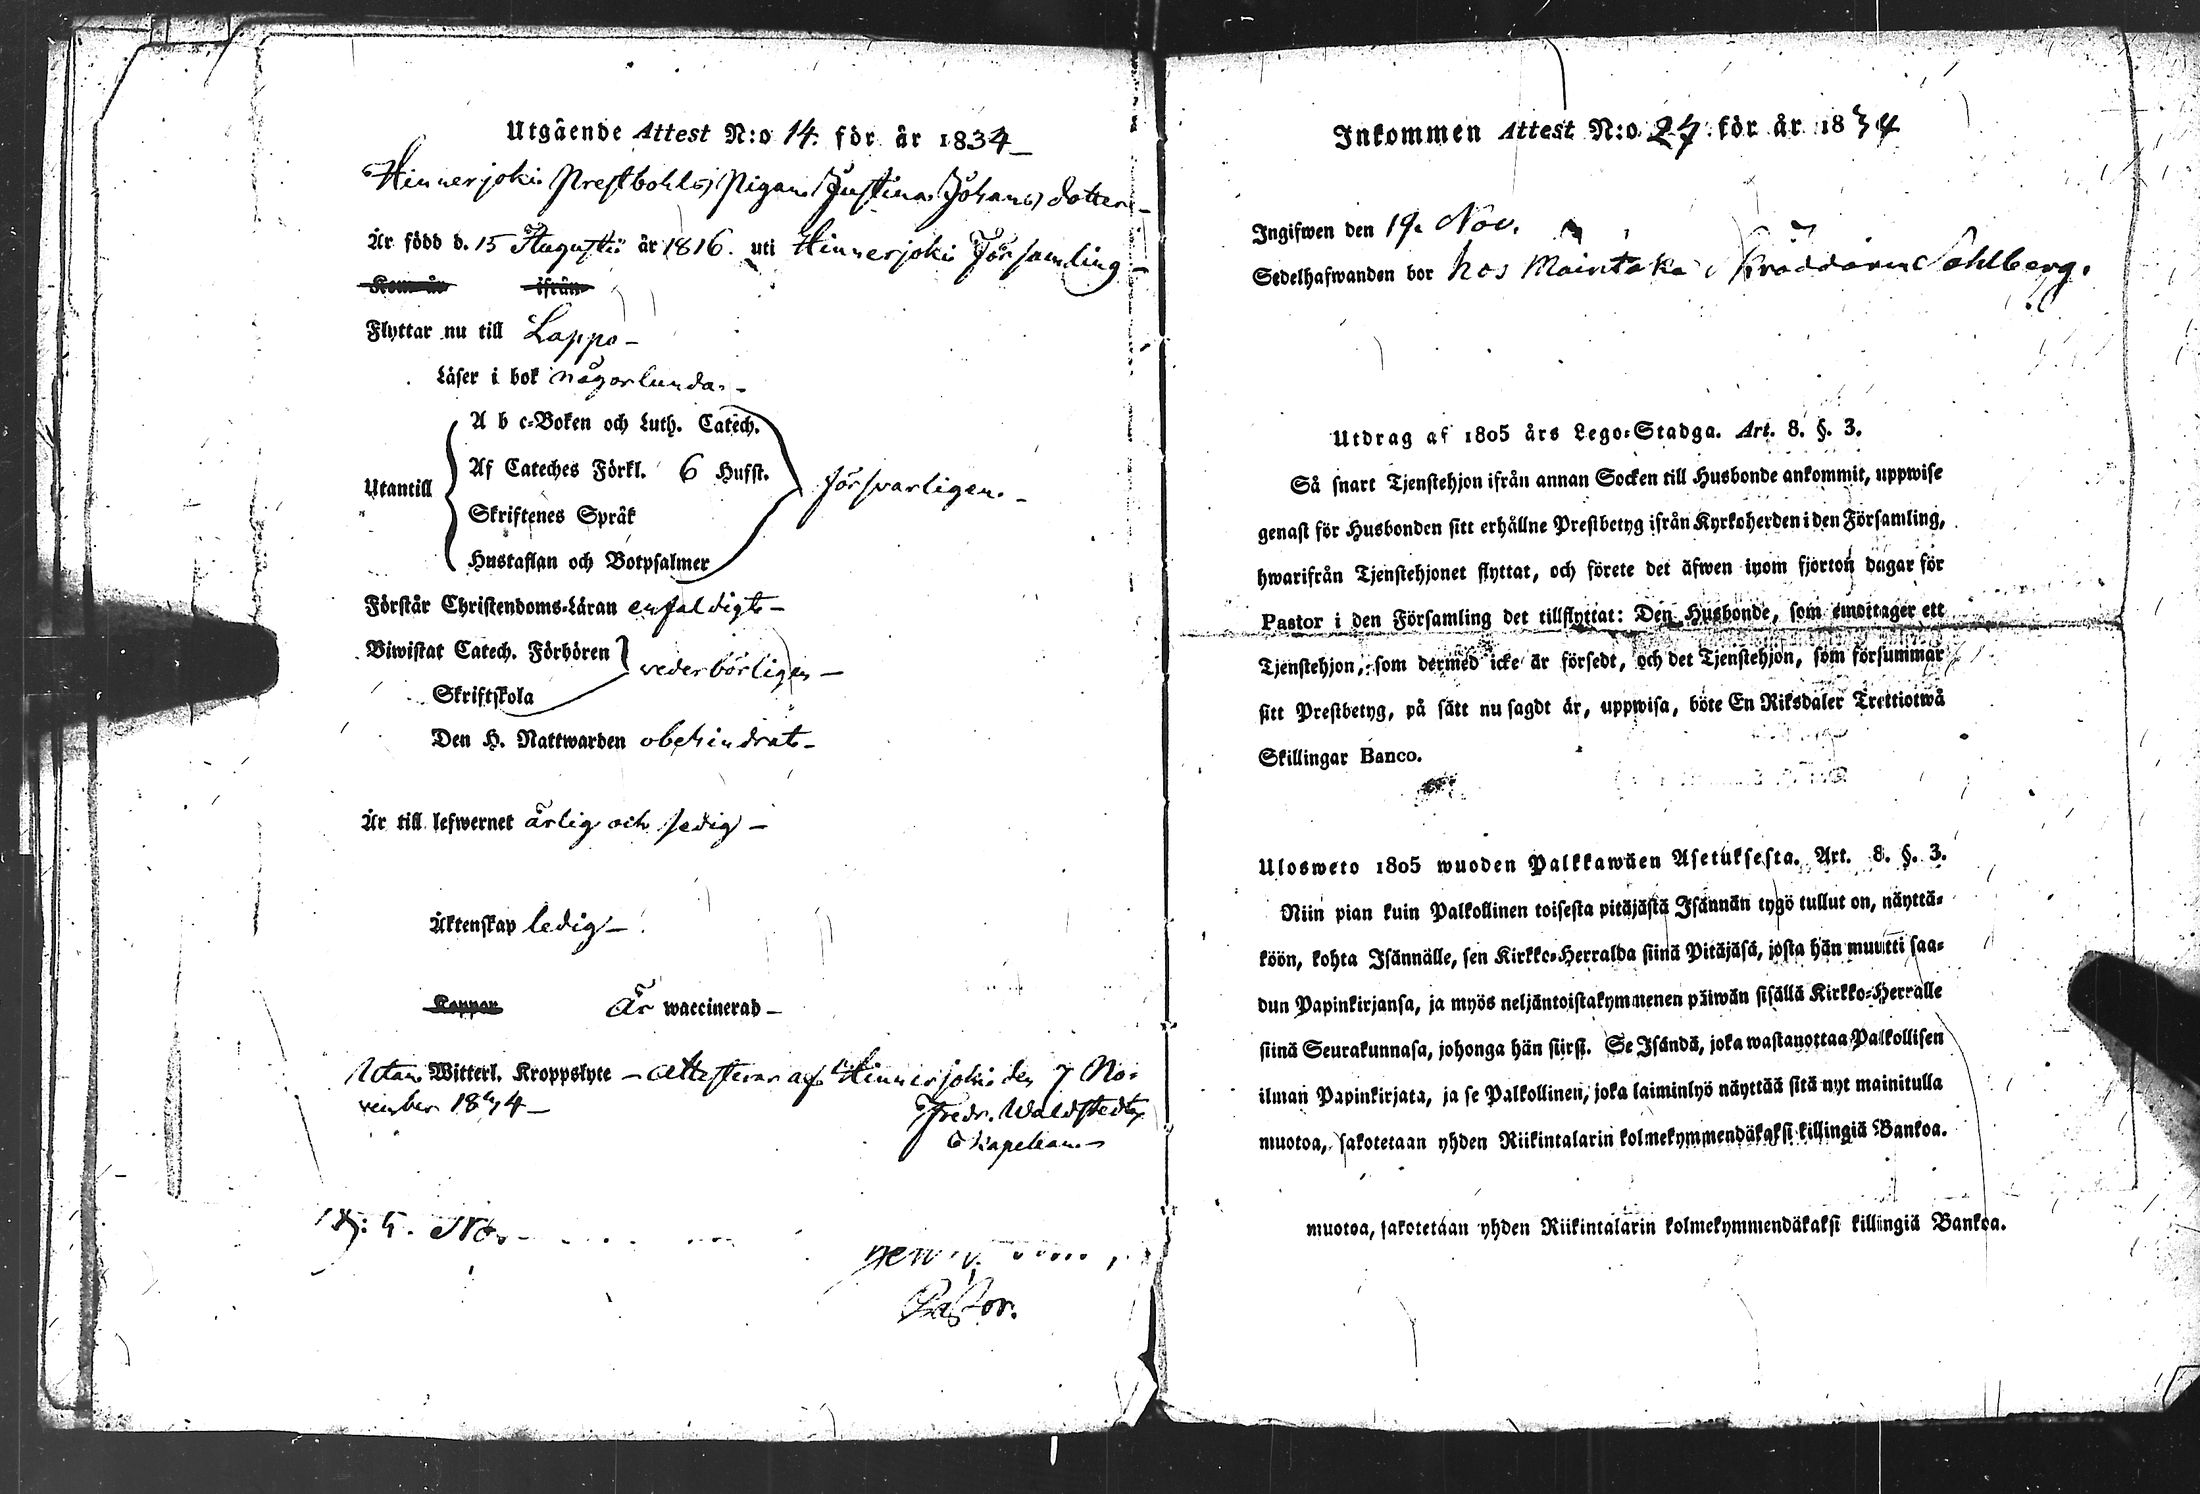 Utgående Attest N:o 14. för år 1834
Hinnerjoki Prestbohls Pigan Justina Johans dotter
År född d. 15 Augusti år 1816. uti Hinnerjoki Församling
Kom år ifrån
Flyttar nu till Lappo
Läser i bok någorlunda
A b c-Boken och Luth. Catech.
Af Cateches Förkl. 6 Hufst.
Utantill försvarligen
Skriftenes Språk
Hustaflan och Botpsalmer
Förstår Christendoms-Läran enfaldigt
Biwistat Catech. Förhören
vederbörligen
Skriftskola
Den H. Nattwarden obehindrat
Är till lefwernet ärlig och sedig
Äktenskap ledig
Koppor Är waccinerad
Utan Witterl. Kroppslyte Attesterar af Hinnerjoki den 7 No-
vember 1834
Fredr. Waldstedt
Kapellan
Pastor.
Inkommen Attest N:o 27 för år 1834
Ingifwen den 19. Nov.
Sedelhafwanden bor hos Skräddaren Sahlberg.
Utdrag af 1805 års Lego-Stadga. Art. 8. §. 3.
Så snart Tjenstehjon ifrån annan Socken till Husbonde ankommit, uppwise
genast för Husbonden sitt erhållne Prestbetyg ifrån Kyrkoherden i den Församling,
hwarifrån Tjenstehjonet flyttat, och förete det äfwen inom fjorton dagar för
Pastor i den Församling det tillflyttat: Den Husbonde, som emottager ett
Tjenstehjon, som dermed icke är försedt, och det Tjenstehjon, som försummar
sitt Prestbetyg, på sätt nu sagdt är, uppwisa, böte En Riksdaler Trettiotwå
Skillingar Banco.
Ulosweto 1805 wuoden Palkkawäen Asetuksesta. Art. 8. §. 3.
Niin pian kuin Palkollinen toisesta pitäjästä Isännän tygö tullut on, näyttä-
köön, kohta Isännälle, sen Kirkko-Herralda siinä Pitäjäsä, josta hän muutti saa-
dun Papinkirjansa, ja myös neljäntoistakymmenen päiwän sisällä Kirkko-Herralle
siinä Seurakunnasa, johonga hän siirsi. Se Isändä, joka wastanottaa Palkollisen
ilman Papinkirjata, ja se Palkollinen, joka laiminlyö näyttää sitä nyt mainitulla
muotoa, sakotetaan yhden Riikintalarin kolmekymmendäkaksi killingiä Bankoa.
muotoa, sakotetaan yhden Riikintalarin kolmekymmendäkaksi killingiä Bankoa.